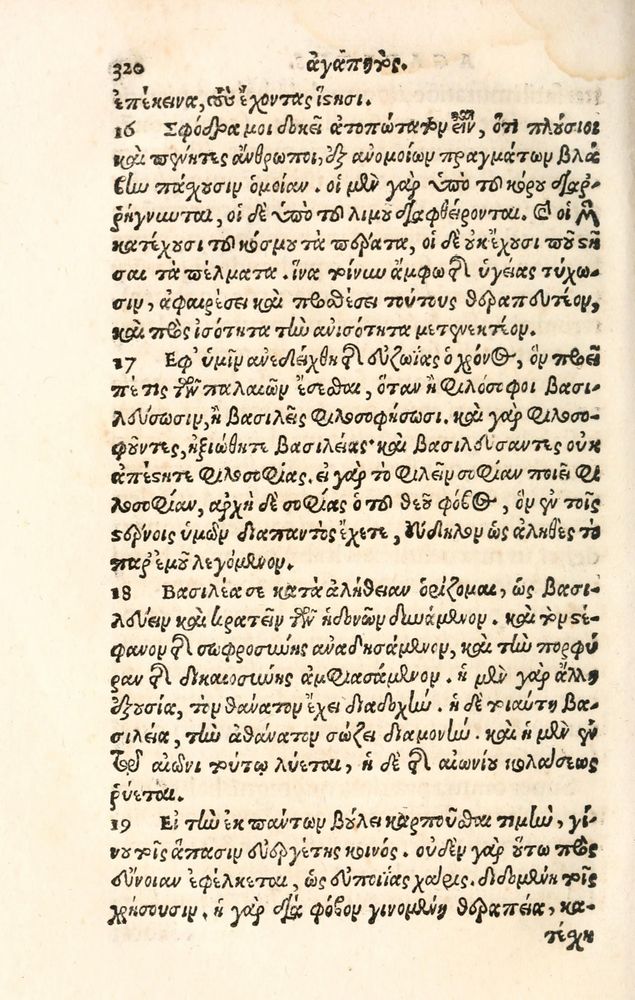 320 ἀγάπητος.
ἐπέκεινα, τοῦ ἔχοντας ἵστησι.
16 Σφόδρα μοι δοκεῖ ἀτοπώτατον εἶναι, ὅτι πλούσιοι
καὶ πένητες ἄνθρωποι, ἐξ ἀνομοίων πραγμάτων βλά
βην πάσχουσιν ὁμοίαν. οἱ μὲν γὰρ ὑπὸ τοῦ κόρου διαρ-
ρήγνυνται, οἱ δὲ ὑπὸ τοῦ λιμοῦ διαφθείρονται. καὶ οἱ μὲν
κατέχουσι τοῦ κόσμου τὰ πέρατα, οἱ δὲ οὐκ ἔχουσι ποῦ στῆ
σαι τὰ πέλματα. ἵνα τοίνυν ἄμφω τῆς ὑγείας τύχω-
σιν, ἀφαιρέσει καὶ προσθέσει τούτους θεραπευτέον,
καὶ πρὸς ἰσότητα τὴν ἀνισότητα μετενεκτέον.
17 Εφ' ὑμῖν ἀνεδείχθη τῆς εὐζωΐας ὁ χρόνος, ὃν προεῖ
πέ τις τῶν παλαιῶν ἔσεσθαι, ὅταν ἢ φιλόσοφοι βασι-
λεύσωσιν, ἢ βασιλεῖς φιλοσοφήσωσι. καὶ γὰρ φιλοσο-
φοῦντες, ἠξιώθητε βασιλείας· καὶ βασιλεύσαντες οὐκ
ἀπέστητε φιλοσοφίας. εἰ γὰρ τὸ φιλεῖν σοφίαν ποιεῖ φι
λοσοφίαν, ἀρχὴ δὲ σοφίας ὁ τοῦ θεοῦ φόβος, ὃν ἐν τοῖς
στέρνοις ὑμῶν διαπαντὸς ἔχετε, εὔδηλον ὡς ἀληθὲς τὸ
παρ' ἐμοῦ λεγόμενον.
18 Βασιλέα σε κατὰ ἀλήθειαν ὁρίζομαι, ὡς βασι-
λεύειν καὶ κρατεῖν τῶν ἡδονῶν δυνάμενον. καὶ τὸν στέ-
φανον τῆς σωφροσύνης ἀναδησάμενον, καὶ τὴν πορφύ
ραν τῆς δικαιοσύνης ἀμφιασάμενον. ἡ μὲν γὰρ ἄλλη
ἐξουσία, τὸν θάνατον ἔχει διαδοχήν. ἡ δὲ τοιαύτη βα-
σιλεία, τὴν ἀθάνατον σώζει διαμονήν. καὶ ἡ μὲν ἐν
τῷ αἰῶνι τούτῳ λύεται, ἡ δὲ τῆς αἰωνίου κολάσεως
ῥύεται.
19 Εἰ τὴν ἐκ πάντων βούλει καρποῦσθαι τιμὴν, γί-
νου τοῖς ἅπασιν εὐεργέτης κοινός. οὐδὲν γὰρ οὕτω πρὸς
εὔνοιαν ἐφέλκεται, ὡς εὐποιΐας χάρις. διδομένη τοῖς
χρῄζουσιν. ἡ γὰρ διὰ φόβον γινομένη θεραπεία, κα-
τέχη